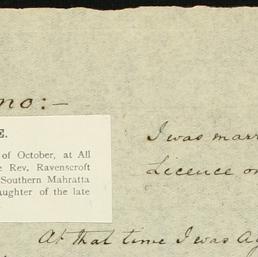 no:-
E.
of October, at All
Rev. Ravenscroft
Southern Mahratta
aughter of the late
I was marr
Licence on
At that time I was ag